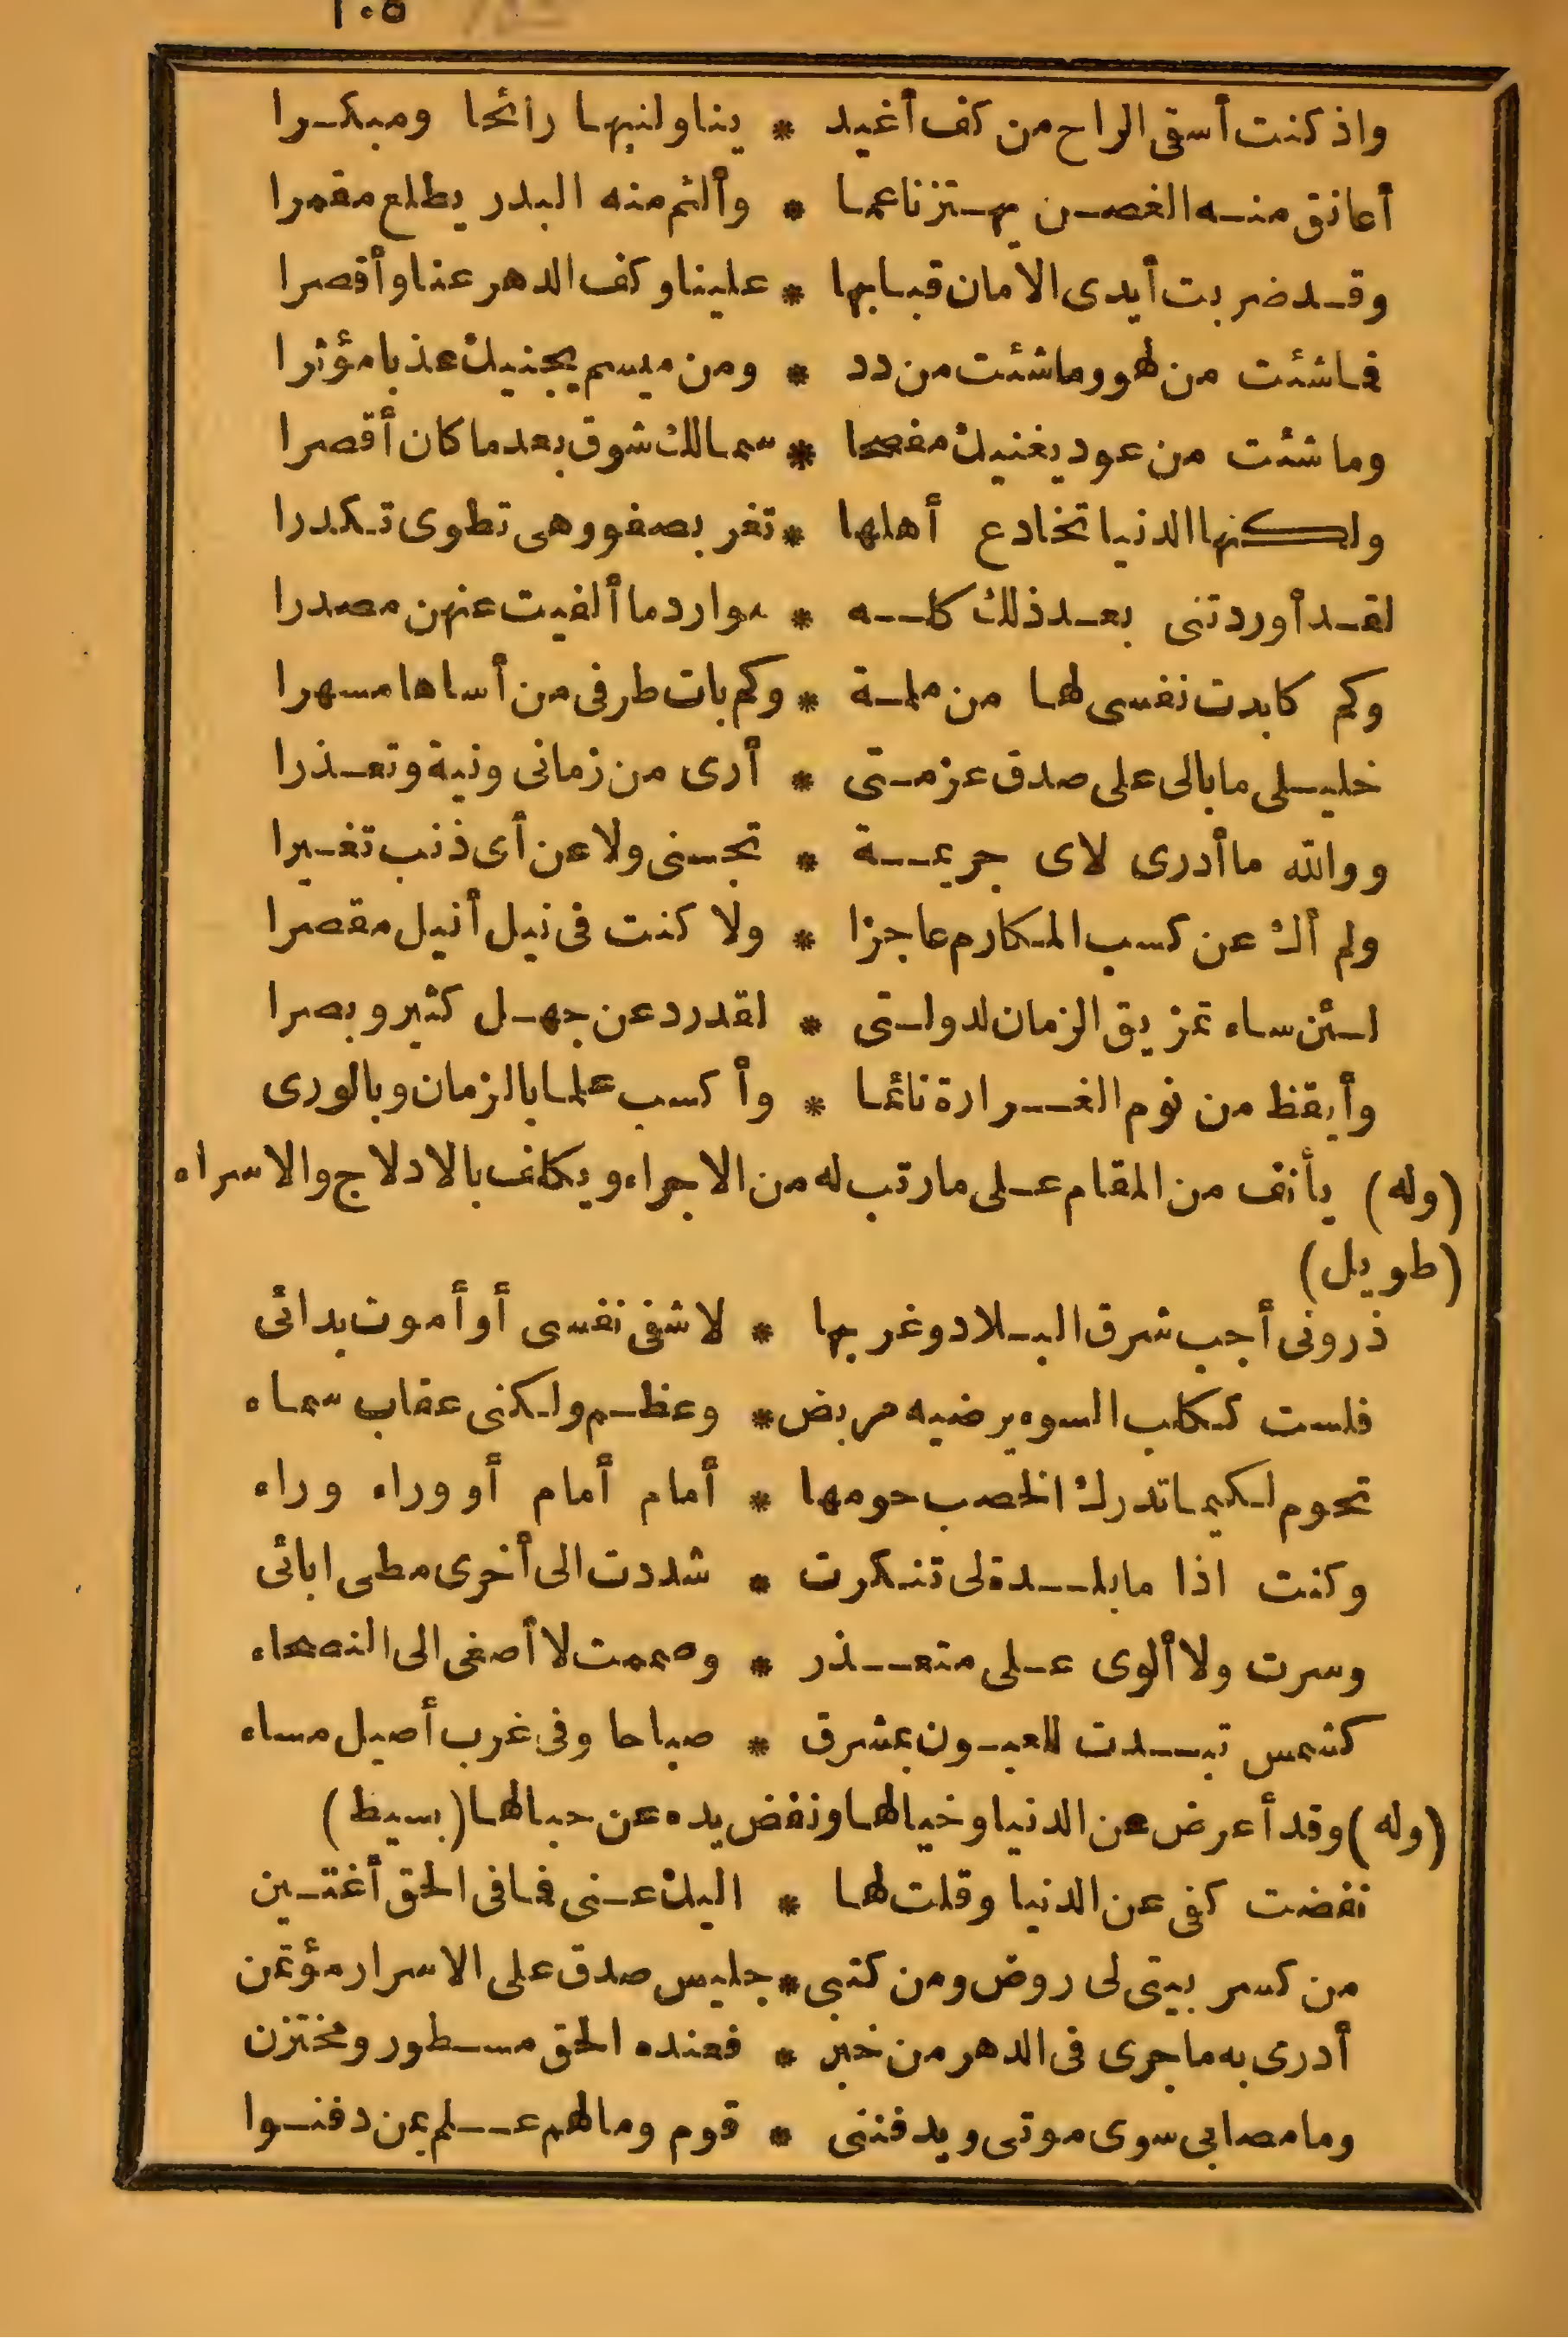 ١٠٥
واذ كنت أسقى الراح من كف أغيد * يناولنيها رائحا ومبكرا
أعانق منه الغصن يهتز ناعما * وألثم منه البدر يطلع مقمرا
وقد ضربت أيدى الامان قبابها * علينا وكف الدهر عنا وأقصرا
فما شئت من لهو وما شئت من دد * ومن مبسم يجنيك عذبا مؤثرا
وما شئت من عود يغنيك مفصحا * سما لك شوق بعدما كان أقصرا
ولكنها الدنيا تخادع أهلها * تغر بصفو وهى تطوى تكدرا
لقد أوردتنى بعد ذلك كله * موارد ما ألفيت عنهن مصدرا
وكم كابدت نفسى لها من ملمة * وكم بات طرفى من أساها مسهرا
خليلى ما بالى على صدق عزمتى * أرى من زمانى ونية وتعذرا
ووالله ما أدرى لاى جريمة * تجنى ولا عن أى ذنب تغيرا
ولم أك عن كسب المكارم عاجزا * ولا كنت فى نيل أنيل مقصرا
لئن ساء تمزيق الزمان لدولتى * لقد رد عن جهل كثير وبصرا
وأيقظ من نوم الغرارة نائما * وأكسب علما بالزمان وبالورى
(وله) يأنف من المقام على ما رتب له من الاجراء ويكلف بالادلاج والاسراء
(طويل)
ذرونى أجب شرق البلاد وغربها * لاشفى نفسى أو أموت بدائى
فلست ككلب السوء يرضيه مربض * وعظم ولكنى عقاب سماء
تحوم لكيما تدرك الخصب حومها * أمام أمام أو وراء وراء
وكنت اذا ما بلدة لى تنكرت * شددت الى أخرى مطى ابائى
وسرت ولا ألوى على متعذر * وصممت لا أصغى الى النصحاء
كشمس تبدت للعيون بمشرق * صباحا وفى غرب أصيل مساء
(وله) وقد أعرض عن الدنيا وخيالها ونفض يده عن حبالها (بسيط)
نفضت كفى عن الدنيا وقلت لها * اليك عنى فما فى الحق أغتبن
من كسر بيتى لى روض ومن كتبى * جليس صدق على الاسرار مؤتمن
أدرى به ما جرى فى الدهر من خبر * فعنده الحق مسطور ومختزن
وما مصابى سوى موتى ويدفننى * قوم وما لهم علم بمن دفنوا